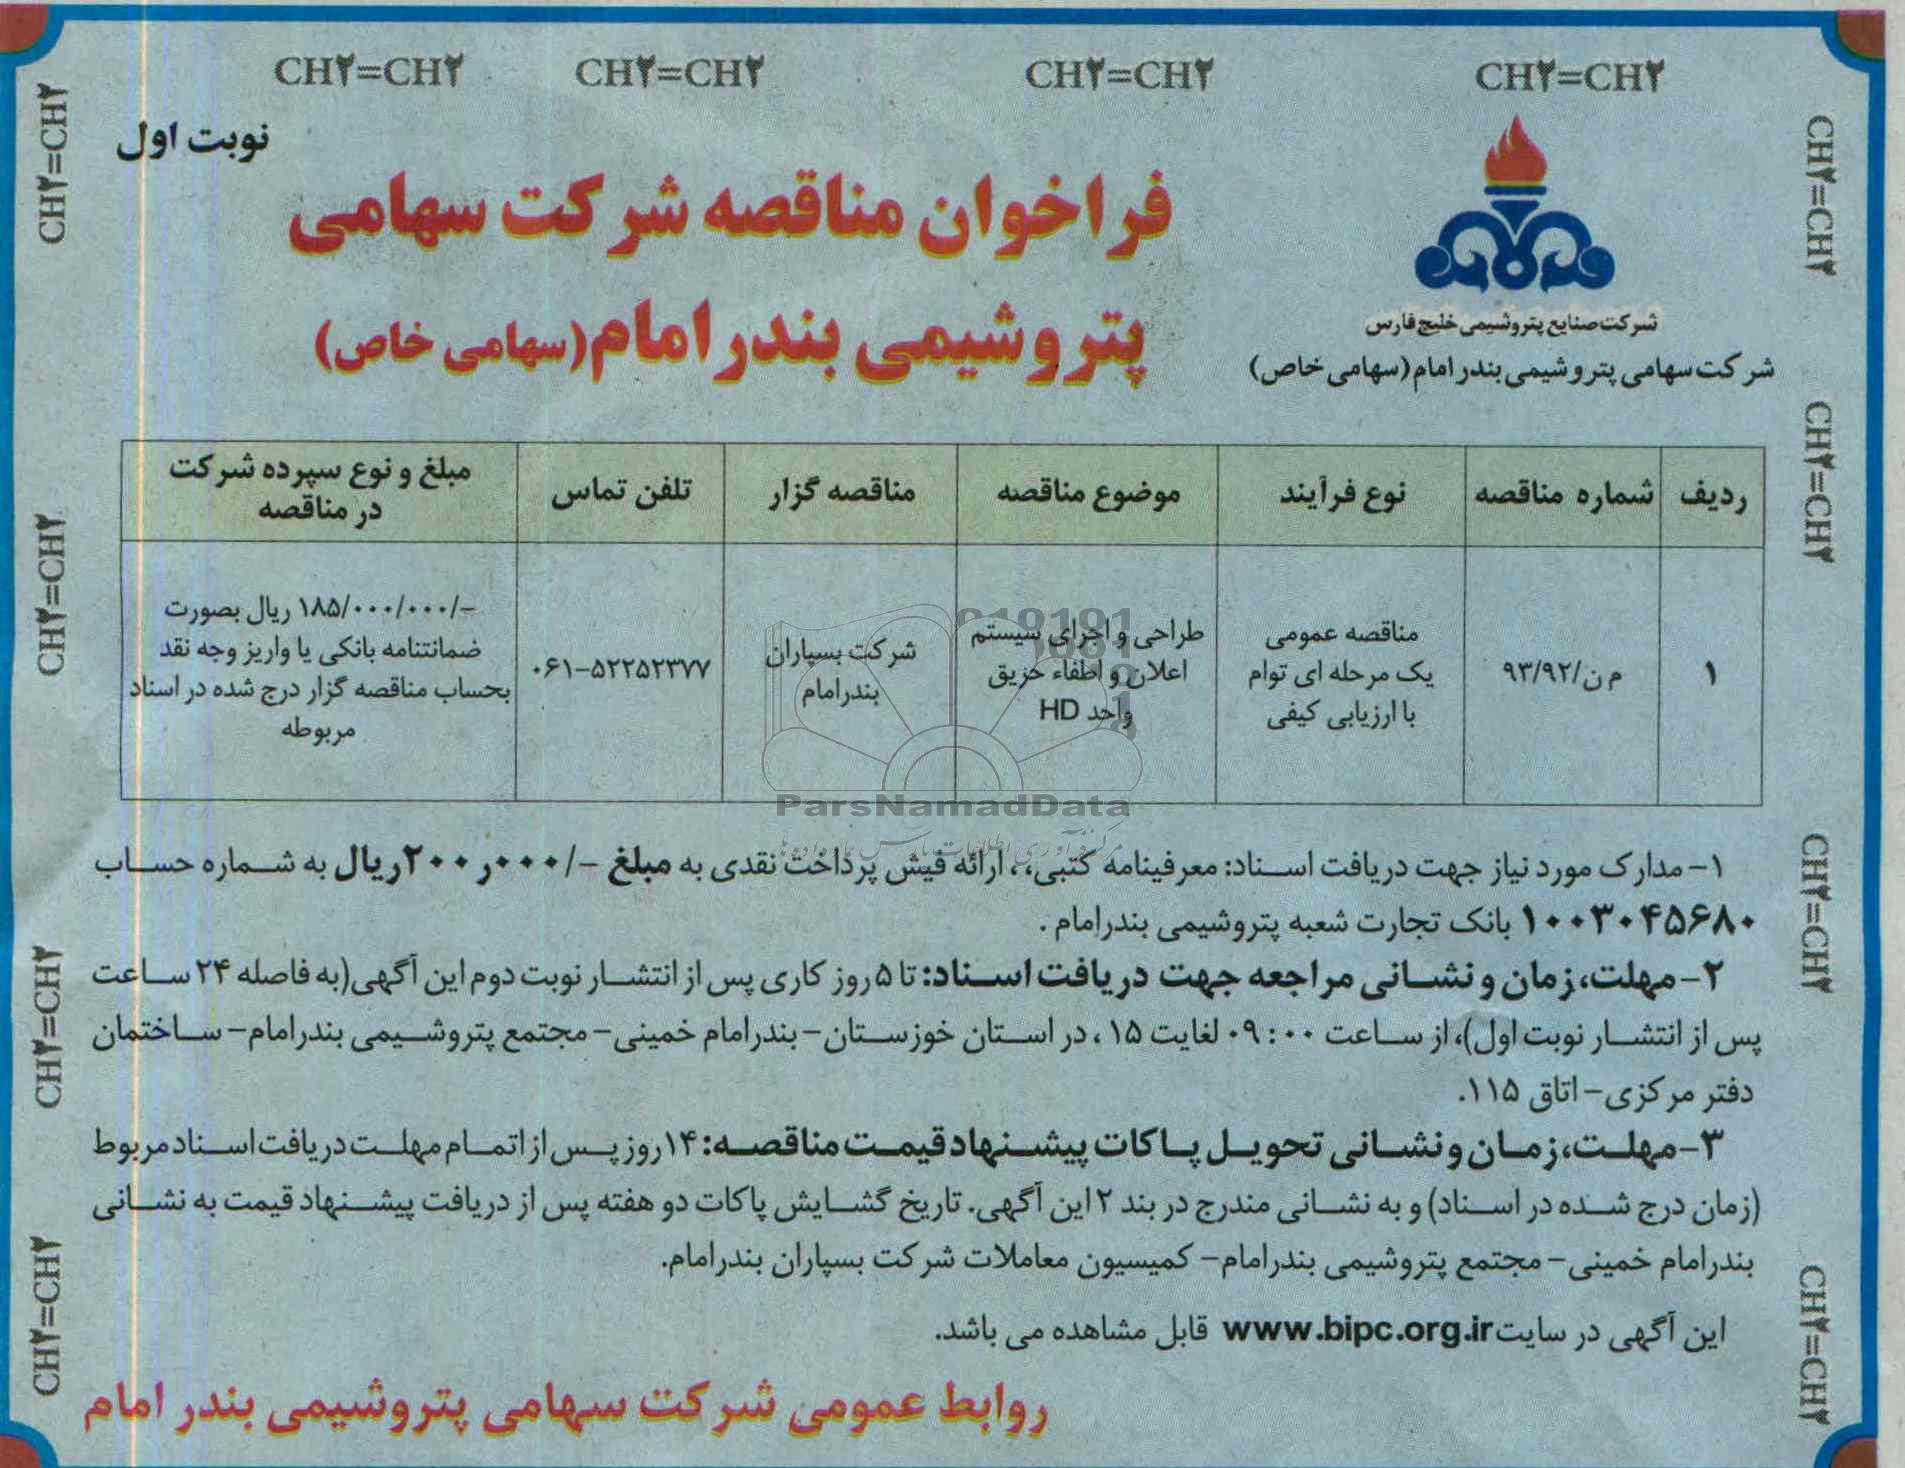 CH۲=CH۲ CH۲=CH۲ CH۲=CH۲ CH۲=CH۲
نوبت اول
فراخوان مناقصه شرکت سهامی
پتروشیمی بندر امام(سهامی خاص)
شرکت صنایع پتروشیمی خلیج فارس
شرکت سهامی پتروشیمی بندر امام(سهامی خاص)
ردیف | شماره مناقصه | نوع فرآیند | موضوع مناقصه | مناقصه گزار | تلفن تماس | مبلغ و نوع سپرده شرکت در مناقصه
۱ | م ن/۹۳/۹۲ | مناقصه عمومی یک مرحله ای توام با ارزیابی کیفی | طراحی و اجرای سیستم اعلان و اطفاء حریق واحد HD | شرکت بسپاران بندرامام | ۰۶۱-۵۲۲۵۲۳۷۷ | -/۱۸۵/۰۰۰/۰۰۰ ریال بصورت ضمانتنامه بانکی یا واریز وجه نقد بحساب مناقصه گزار درج شده در اسناد مربوطه
ParsNamadData
۱- مدارک مورد نیاز جهت دریافت اسناد: معرفینامه کتبی،، ارائه فیش پرداخت نقدی به مبلغ -/۲۰۰ر۰۰۰ریال به شماره حساب
۱۰۰۳۰۴۵۶۸۰ بانک تجارت شعبه پتروشیمی بندرامام .
۲- مهلت، زمان و نشانی مراجعه جهت دریافت اسناد: تا ۵ روز کاری پس از انتشار نوبت دوم این آگهی(به فاصله ۲۴ ساعت
پس از انتشار نوبت اول)، از ساعت ۰۹:۰۰ لغایت ۱۵ ، در استان خوزستان- بندرامام خمینی- مجتمع پتروشیمی بندرامام- ساختمان
دفتر مرکزی- اتاق ۱۱۵.
۳- مهلت، زمان و نشانی تحویل پاکات پیشنهاد قیمت مناقصه: ۱۴ روز پس از اتمام مهلت دریافت اسناد مربوط
(زمان درج شده در اسناد) و به نشانی مندرج در بند ۲ این آگهی. تاریخ گشایش پاکات دو هفته پس از دریافت پیشنهاد قیمت به نشانی
بندرامام خمینی- مجتمع پتروشیمی بندرامام- کمیسیون معاملات شرکت بسپاران بندرامام.
این آگهی در سایت www.bipc.org.ir قابل مشاهده می باشد.
روابط عمومی شرکت سهامی پتروشیمی بندر امام
CH۲=CH۲
CH۲=CH۲
CH۲=CH۲
CH۲=CH۲
CH۲=CH۲
CH۲=CH۲
CH۲=CH۲
CH۲=CH۲